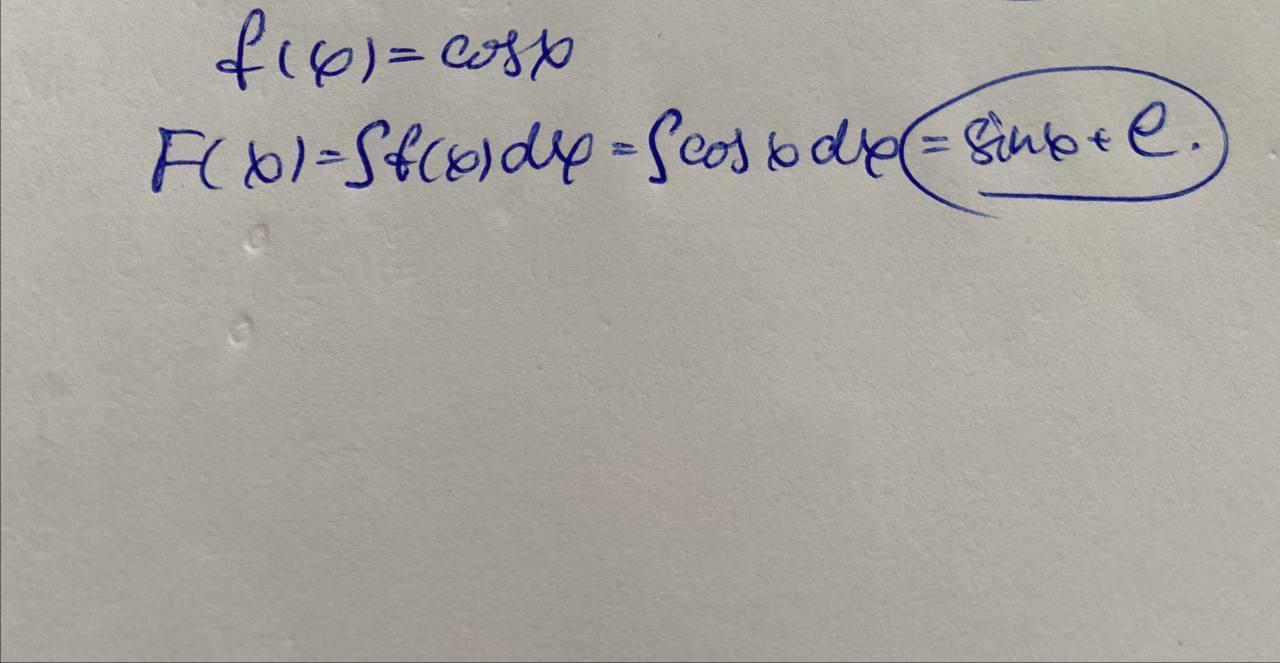 f(x) = cos x
F(x) = ∫f(x)dx = ∫cos x dx = sin x + C.